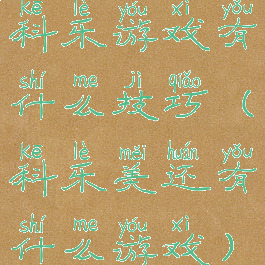 kē lè yóu xì yǒu
科乐游戏有
shí me jì qiǎo
什么技巧（
kē lè měi huán yǒu
科乐美还有
shí me yóu xì
什么游戏）